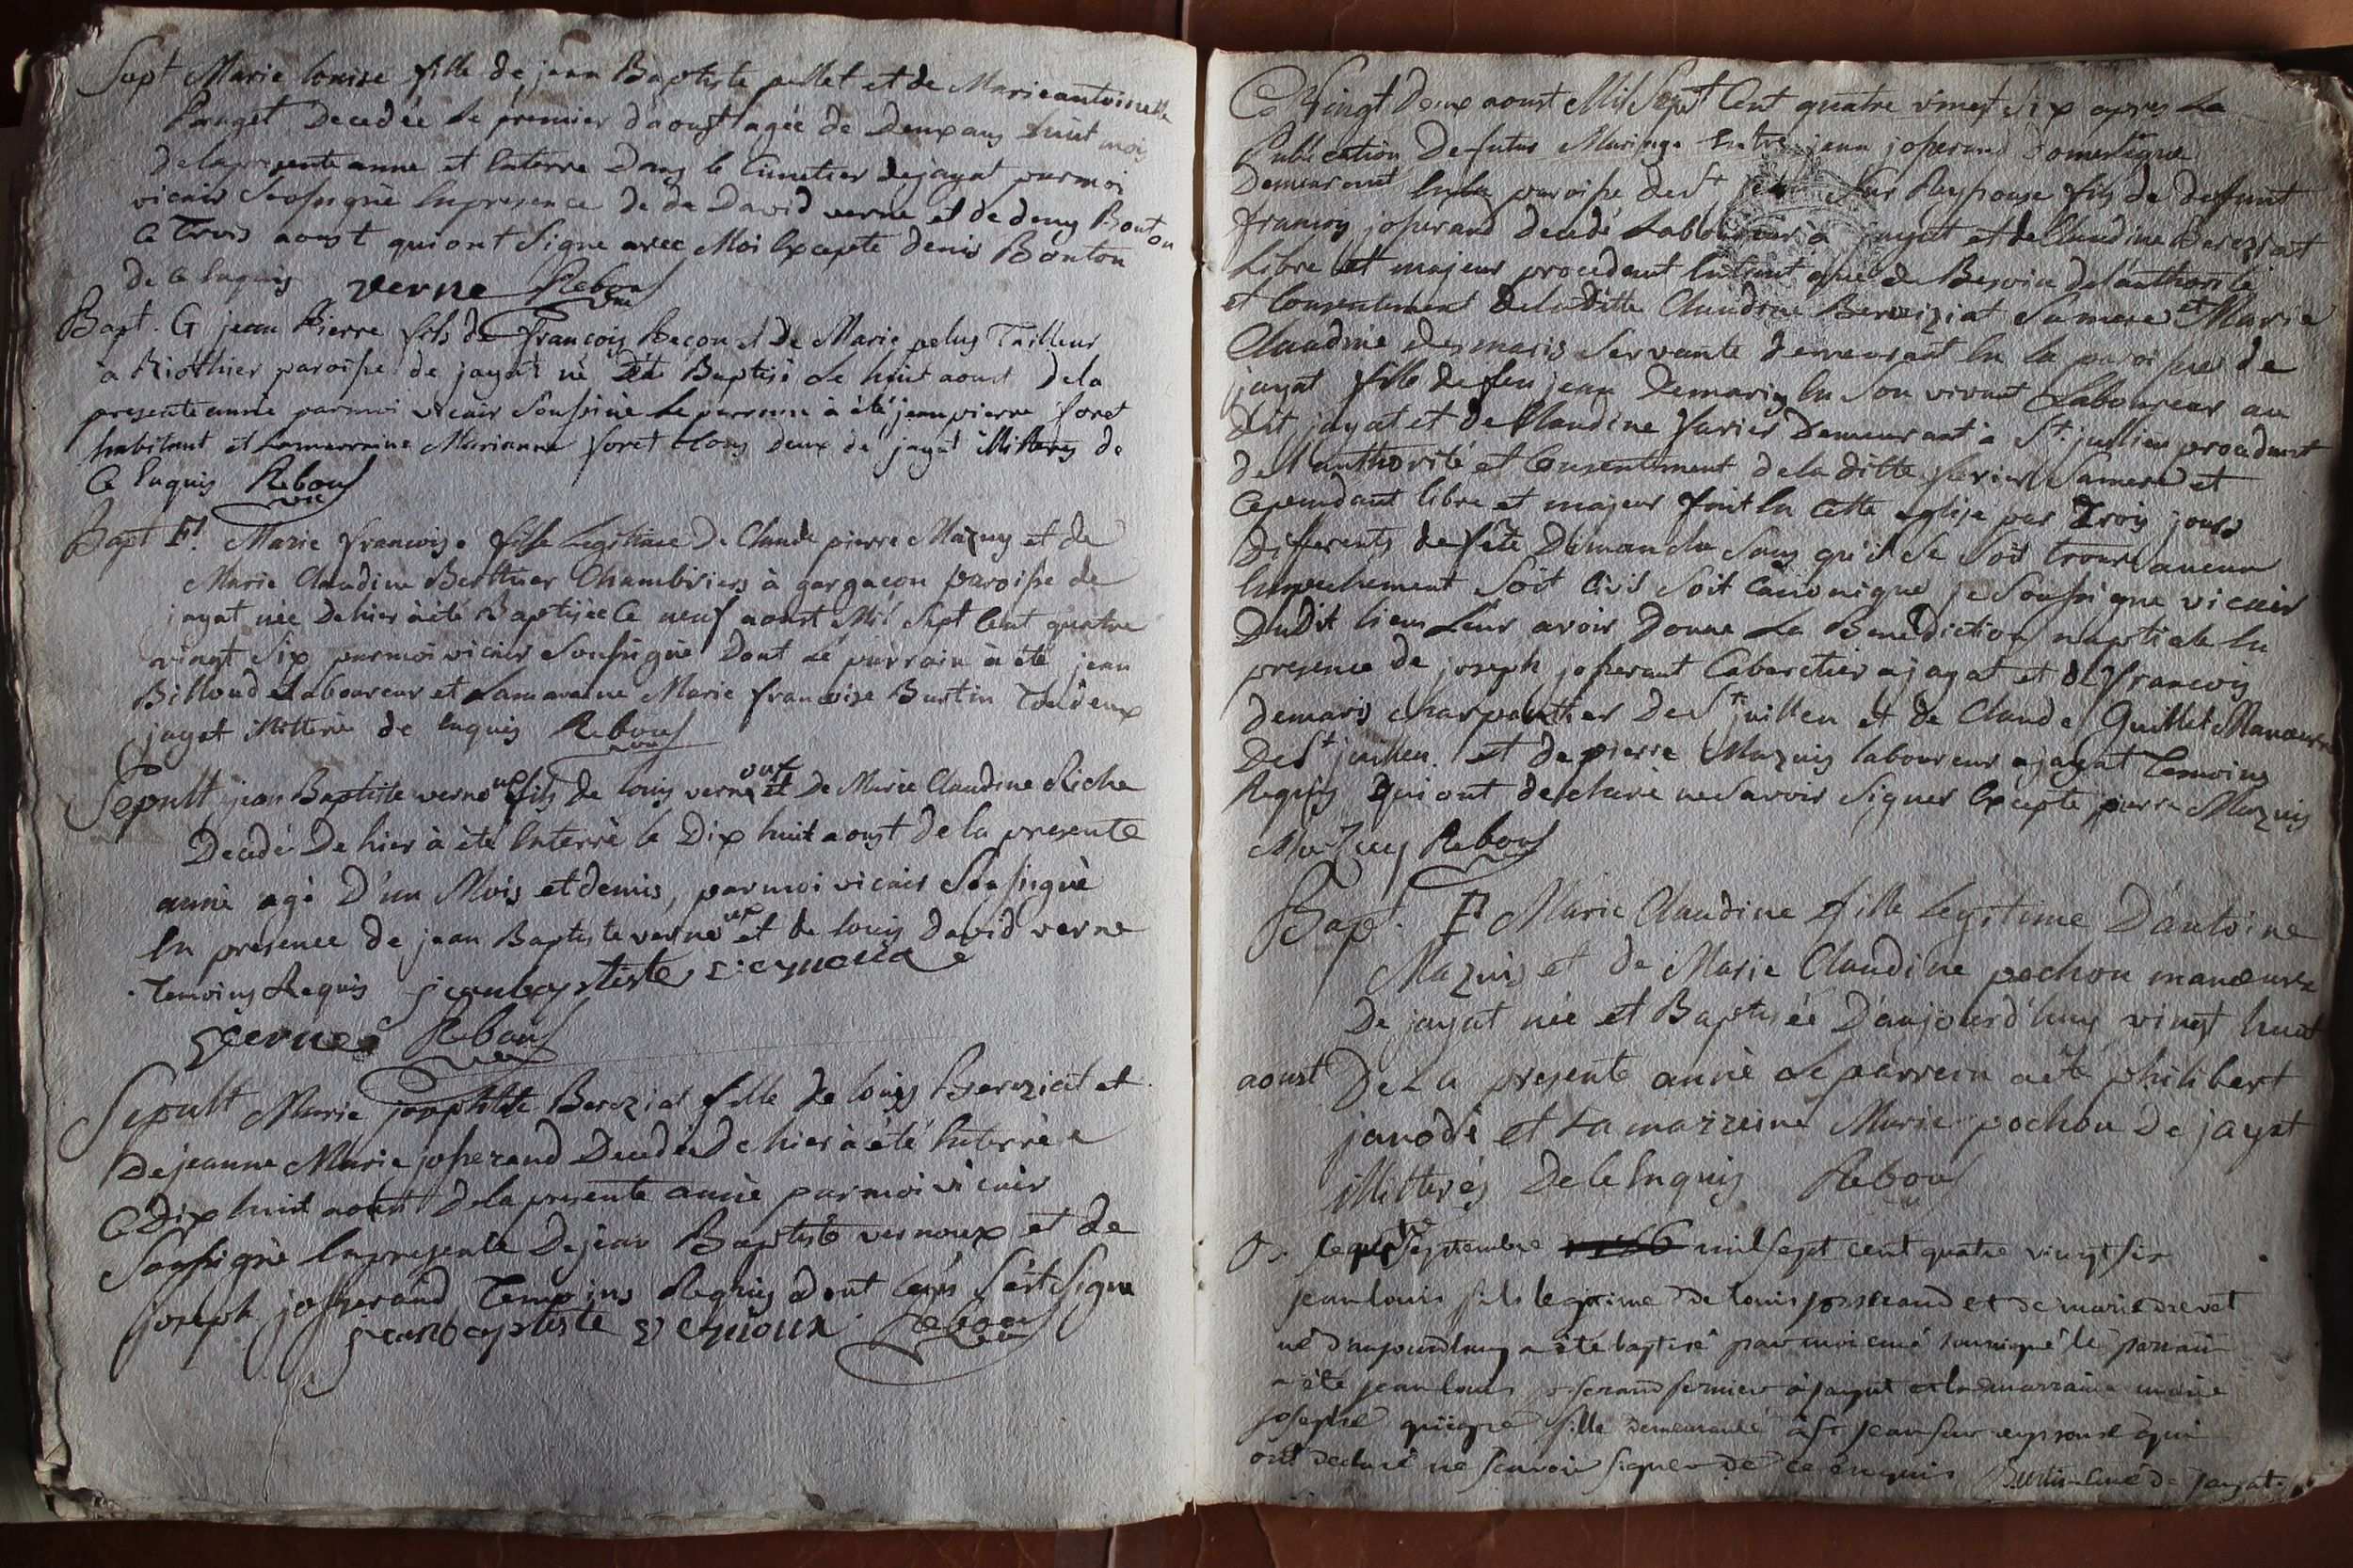 Sept Marie louise fille de jean Baptiste pillet et de Marie antoinette
Panget Decedée le premier d'aoust agée de Deux ans huit mois
de la presente anne et Enterre Dans le Cimetier de jayat par moi
vicair Soussigné En presence de de David verne et de deny Bonton
Ce Trois aoust qui ont Signe avec Moi Excepte denis Bonton
de ce Enquis verne Reboul vic
Bapt. G jean Pierre fils de françois Peçon et De Marie pelus Tailleur
a Riothier paroisse de jayat né Eté Baptisé Le huit aoust de la
presente anné par moi vicair Soussiné Le parrain à été jean pierre foret
habitant et La marraine Marianne foret tous deux de jayat illitterés de
Ce Enquis Reboul vic
Bapt F. Marie francoise fille Legitime De Claude pierre Mazuy et de
Marie Claudine Berthier Chambiriers à gargacon paroisse de
jayat née De hier à été Baptisée Ce neuf aoust Mil Sept Cent quatre
vingt Six par moi vicair Soussigné Dont Le parrain à été jean
Billoud Laboureur et La maraine Marie francoise Burtin Tou deux
jayat illitteré de Enquis Reboul
Sepult jean Baptiste vernoux fils de louis vernoux et De Marie Claudine Riche
Decedé De hier à été Enterré le Dix huit aoust de la presente
anné agé D'un Mois et demis, par moi vicair Soussigné
En presence de jean Baptiste vernoux et de louis David verne
Temoins Requis jean baptiste vernoux
verne Reboul vic
Sepult Marie josephte Berezial fille de louis Bereziat et
De jeanne Marie josserand Decedée De hier à été Enterrée
Ce Dix huit aoust de la presente anné par moi vicair
Soussigné En presente De jean Baptiste vernoux et de
joseph josserand Temoins Requis dont S'est Signe
jean baptiste vernoux Reboul
Ce Vingt Deux aoust Mil Sept Cent quatre vingt Six apres La
Publication De futur Mariage Entre jean josserand Domestique
Demeurant En La paroisse de St jean Sur Reyssouse fils de Defunt
francois josserand Decedé Laboureur à jayat et de Claudine Bereziat
Libre et majeur procedant En tant que de Besoin de l'authorité
et Consentement de la Ditte Claudine Bereiziat Sa mere et Marie
Claudine Desmaris Servante demeurant En la paroisse de
jayat fille de feu jean Demaris En Son vivant Laboureur au
dit jayat et de Claudine favier Demeurant à St jullien procedant
de l'authorité et Consentement de la ditte favier Sa mere et
Cependant libre et majeur fait En Cette eglise par Trois jours
Differents de fête Dimanche Sans qu'il Se Soit trouvé aucun
Empechement Soit Civil Soit Canonique je Soussigne vicair
Du Dit lieu Leur avoir Donne La Benediction nuptiale En
presence de joseph josserant Cabaretier a jayat et de francois
demaris charpantier De St juillen et de Claude Guillet Manœuvre
De St juillen. et de pierre Mazuis laboureur a jayat Temoins
Requis qui ont declaré ne Savoir Signer Excepte pierre Mazuis
Mazuy Reboul
Bapt. F Marie Claudine fille Legitime D'antoine
Mazuis et de Marie Claudine pochon manœuvre
De jayat née et Baptisée D'aujourd'huy vingt huit
aoust De La presente anné Le parrein a été philibert
janodé et La marreine Marie pochon De jayat
illitterés De Ce Enquis Reboul
Septembre mil sept cent quatre vingt six
jean louis fils legitime De louis josserand et de marie drevet
né d'aujourdhuy a été baptisé par moi curé soussigné le parrain
a été jean louis josserand fermier a jayat et la marraine marie
josephe fille demeurante à St jean sur reyssouse qui
ont declaré ne scavoir signer de ce enquis Burtin Curé de Jayat.